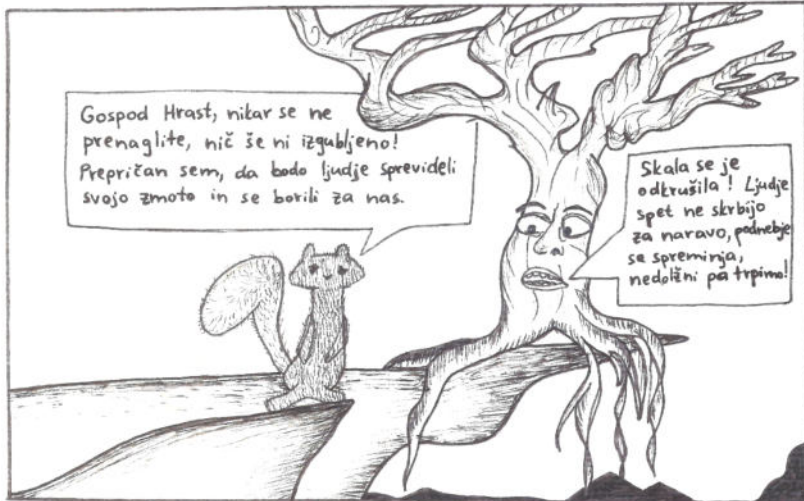 Gospod Hrast, nikar se ne
prenaglite, nič še ni izgubljeno!
Prepričan sem, da bodo ljudje sprevideli
svojo zmoto in se borili za nas.
Skala se je
odkrušila! Ljudje
spet ne skrbijo
za naravo, podnebje
se spreminja,
nedolžni pa trpimo!